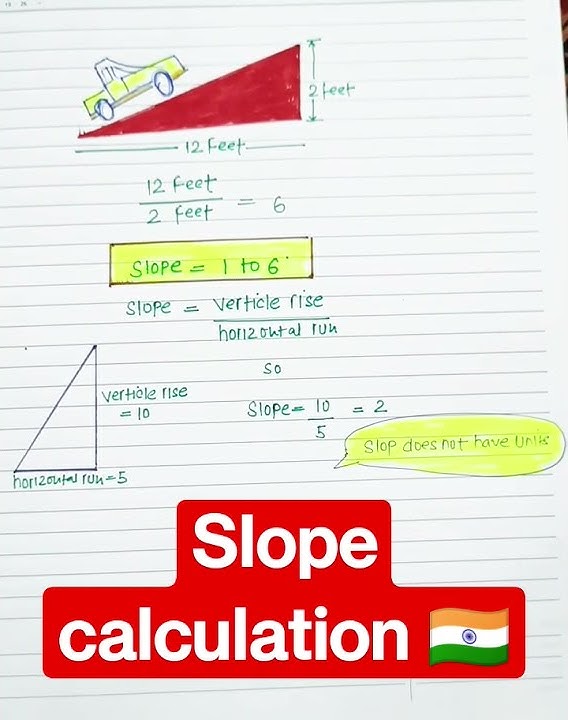 2 feet
12 Feet
12 Feet
2 Feet
= 6
Slope = 1 to 6
Slope = Verticle rise
horizontal run
so
Verticle rise
= 10
Slope= 10
5
= 2
Slop does not have Units
horizontal run=5
Slope
calculation